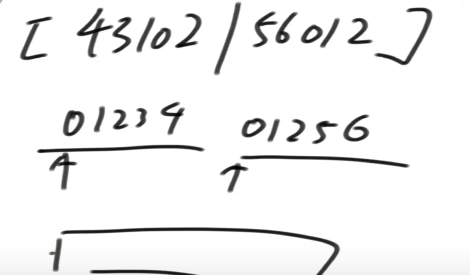 [ 43102 / 56012 ]
01234 01256